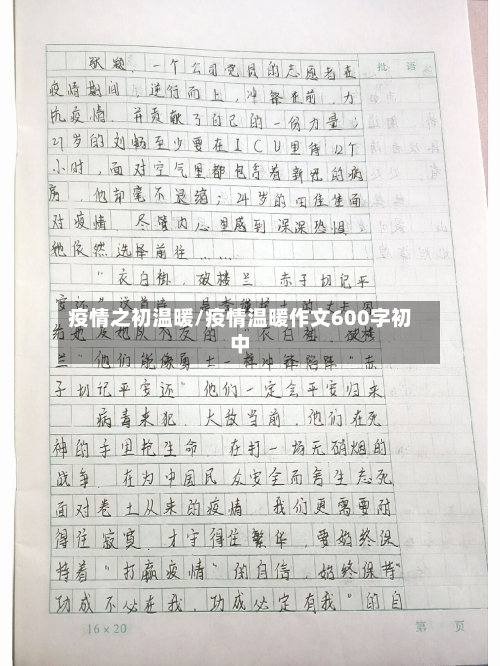 耿凝，一个公司党员的志愿者在 批 语
疫情期间，逆行而上，冲锋在前，力
抗疫情，并贡献了自己的一份力量；
27岁的刘畅至少要在ICU里待12个
小时，面对空气里都包含着新冠的病
房，他却毫不退缩；24岁的田佳佳面
对疫情，尽管内心里感到深深恐惧，
她依然选择前往……
“衣白褂，破楼兰，赤子切记平
疫情之初温暖/疫情温暖作文600字初
中
兰”他们能像勇士一样冲锋陷阵“赤
子切记平安还”他们一定会平安归来
病毒来犯，大敌当前，他们在死
神的手里抢生命，在打一场无硝烟的
战争，在为中国民众安全而舍生忘死
面对卷土从来的疫情，我们更需要耐
得住寂寞，才守得住繁华，要始终保
持着“打赢疫情”的自信，始终保持“
功成不必在我，功成必定有我”的自
16×20 第 页